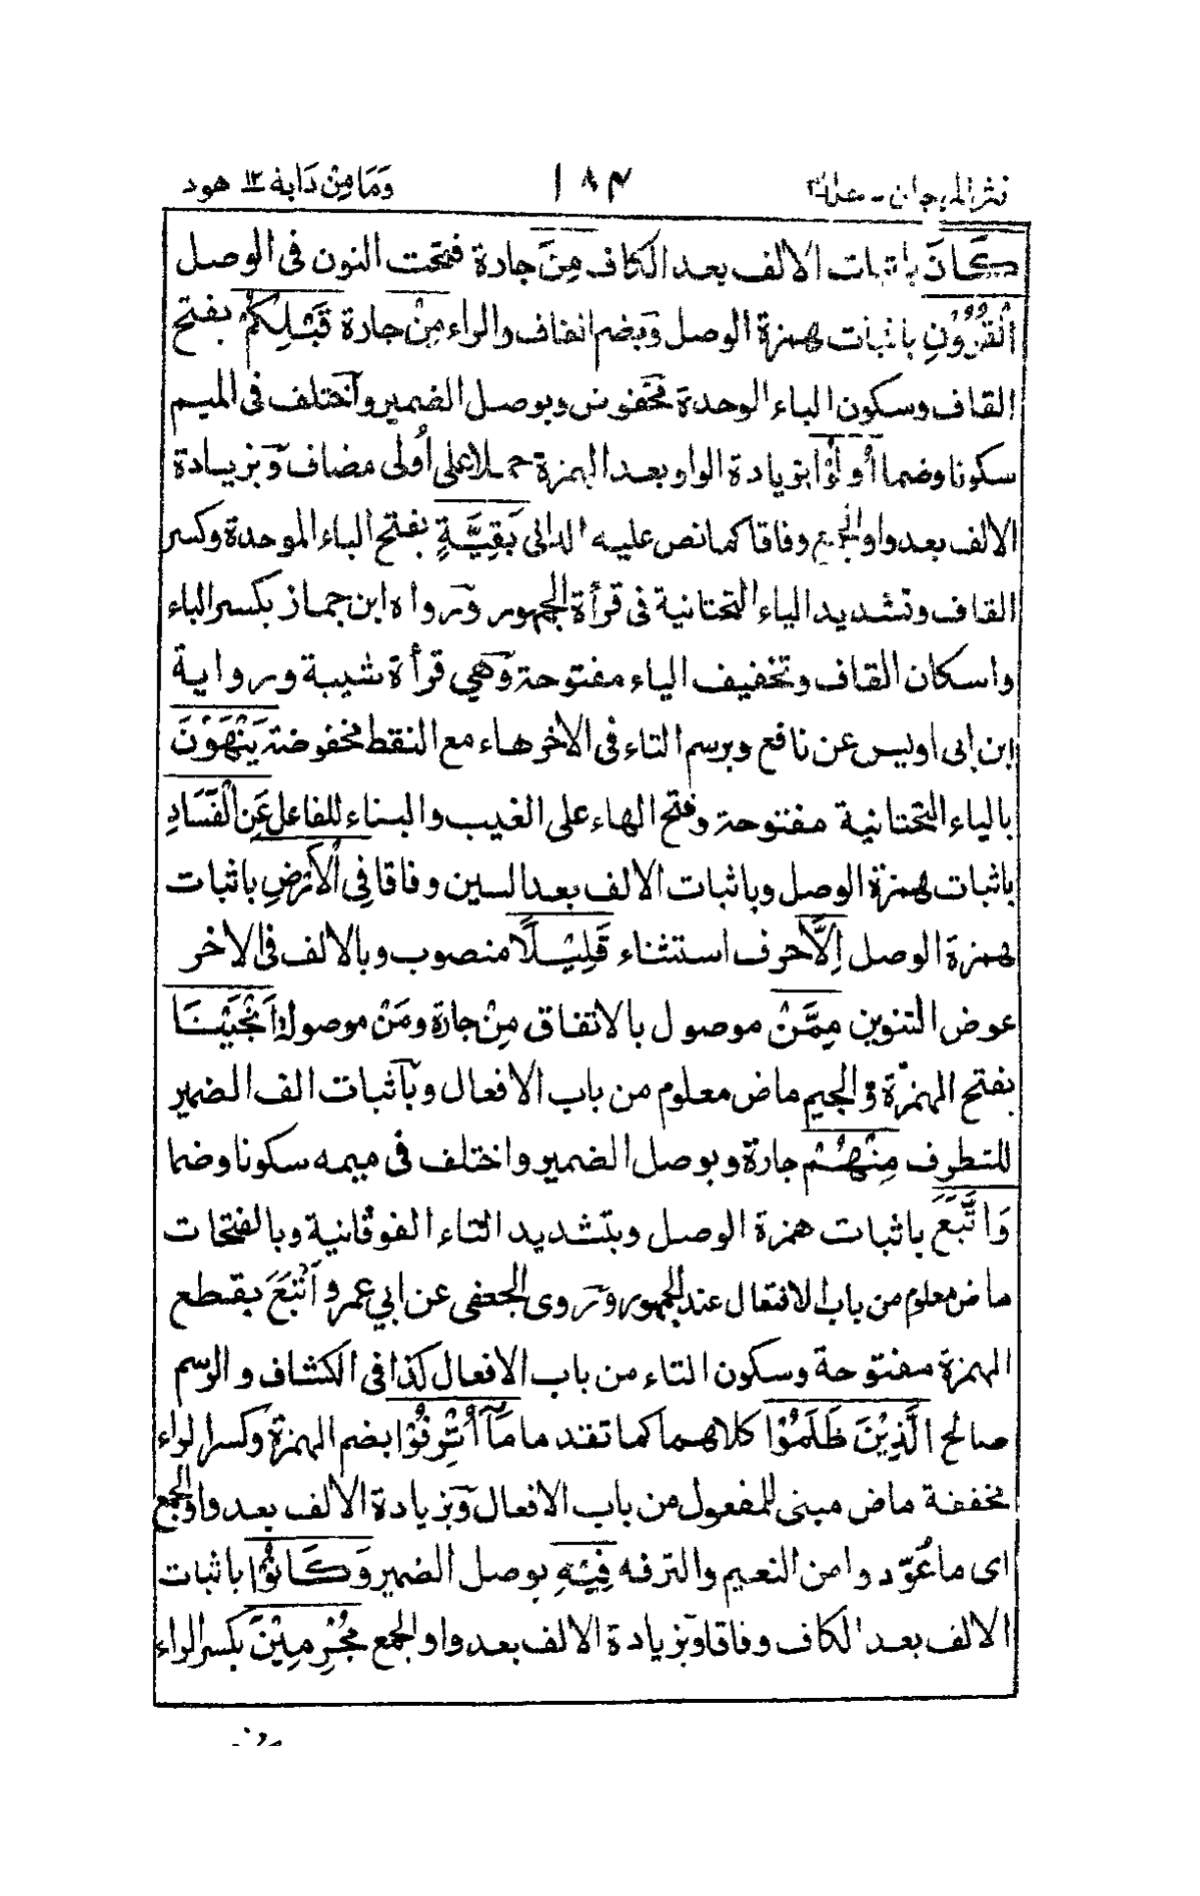 نثر المرجان - جلد ٣ ١٨٤ وَمَا مِنْ دَابة ١٢ هود
كَانَ باثبات الالف بعد الكاف مِنَ جارة فتحت النون فى الوصل
الْقُرُوْنِ باثبات همزة الوصل وبضم القاف والراء مِنْ جارة قَبْلِكُمْ بفتح
القاف وسكون الباء الوحدة مخفوض وبوصل الضمير واختلف فى الميم
سكونا وضما أُولُوْا بزيادة الواو بعد الهمزة حملا على أُولى مضاف وبزيادة
الالف بعد واو الجمع وفاقا كما نص عليه الدانى بَقِيَّةٍ بفتح الباء الموحدة وكسر
القاف وتشديد الياء التحتانية فى قرأة الجمهور ورواه ابن جماز بكسر الباء
واسكان القاف وتخفيف الياء مفتوحة وهي قرأة شيبة ورواية
ابن ابى اويس عن نافع وبرسم التاء فى الاخر هاء مع النقط مخفوضة يَنْهَوْنَ
بالياء التحتانية مفتوحة وفتح الهاء على الغيب والبناء للفاعل عَنِ الْفَسَادِ
باثبات همزة الوصل وباثبات الالف بعد السين وفاقا فِى الْاَرْضِ باثبات
همزة الوصل اِلَّا حرف استثناء قَلِيْلًا منصوب وبالالف فى الاخر
عوض التنوين مِمَّنْ موصول بالاتفاق مِنْ جارة ومَنْ موصولة اَنْجَيْنَا
بفتح الهمزة والجيم ماض معلوم من باب الافعال وباثبات الف الضمير
للتطرف مِنْهُمْ جارة وبوصل الضمير واختلف فى ميمه سكونا وضما
وَاتَّبَعَ باثبات همزة الوصل وبتشديد التاء الفوقانية وبالفتحات
ماض معلوم من باب الافتعال عند الجمهور وروى الجعفى عن ابي عمرو اَتْبَعَ بقطع
الهمزة مفتوحة وسكون التاء من باب الافعال كذا فى الكشاف والرسم
صالح الَّذِيْنَ ظَلَمُوْا كلاهما كما تقدما مَآ اُتْرِفُوْا بضم الهمزة وكسر الراء
مخففة ماض مبنى للمفعول من باب الافعال وبزيادة الالف بعد واو الجمع
اى ما عُوّدوا من النعيم والترفه فِيْهِ بوصل الضمير وَكَانُوْا باثبات
الالف بعد الكاف وفاقا وبزيادة الالف بعد واو الجمع مُجْرِمِيْنَ بكسر الراء